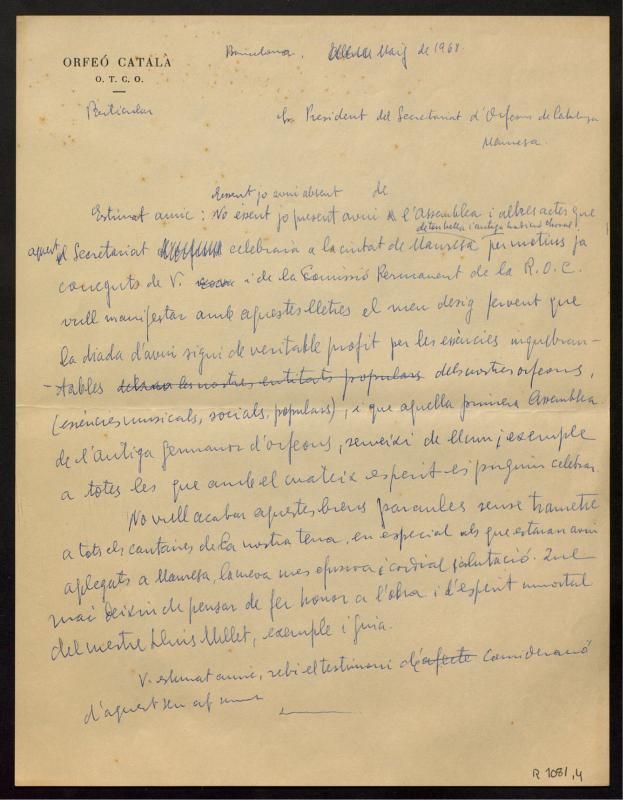 ORFEÓ CATALÀ
O. T. C. O.
Barcelona, Maig de 1968.
Particular
Sr. President del Secretariat d'Orfeons de Catalunya
Manresa.
Essent jo avui absent de
Estimat amic: No essent jo present avui a l'Assemblea i altres actes que
de tan bella i antiga tradició choral,
aquest Secretariat celebrarà a la ciutat de Manresa per motius ja
coneguts de V. i de la Comissió Permanent de la R.O.C.
vull manifestar amb aquestes lletres el meu desig fervent que
la diada d'avui sigui de veritable profit per les essències inquebran-
-tables de les nostres entitats populars dels nostres orfeons,
(essències musicals, socials, populars), i que aquella primera Assemblea
de l'Antiga Germanor d'orfeons, serveixi de llum i exemple
a totes les que amb el mateix esperit es puguin celebrar.
No vull acabar aquestes breus paraules sense trametre
a tots els cantaires de la nostra terra, en especial als que estaran avui
aplegats a Manresa, la meva mes efusiva i cordial salutació. Que
mai deixin de pensar de fer honor a l'obra i a l'esperit inmortal
del mestre Lluis Millet, exemple i guia.
V. estimat amic, rebi el testimoni d'afecte consideració
d'aquest seu af
R 1081,4